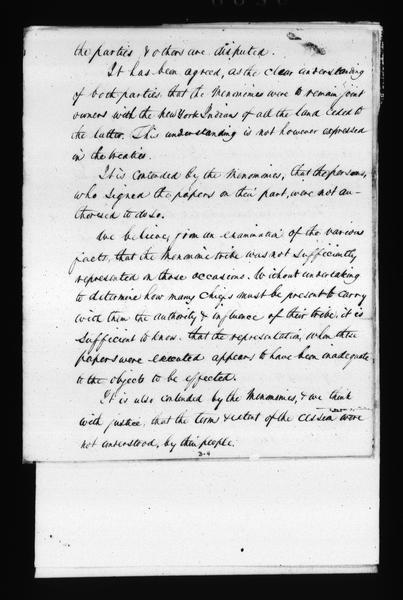 the parties & others are disputed.
It has been agreed, as the clear understanding
of both parties, that the Menomines were to remain joint
owners with the New York Indians of all the land ceded to
the latter. This understanding is not however expressed
in the treaties.
It is contended by the Menomines, that the persons,
who signed the papers on their part, were not au-
thorised to do so.
We believe, from an examination of the various
facts, that the Menomine tribe was not sufficiently
represented on those occasions. Without undertaking
to determine how many chiefs must be present to carry
with them the authority & influence of their tribe, it is
sufficient to know that the representation, when these
papers were executed appears to have been inadequate
to the objects to be effected.
It is also contended by the Menomines, & we think
with justice, that the terms & extent of the cession were
not understood, by their people.